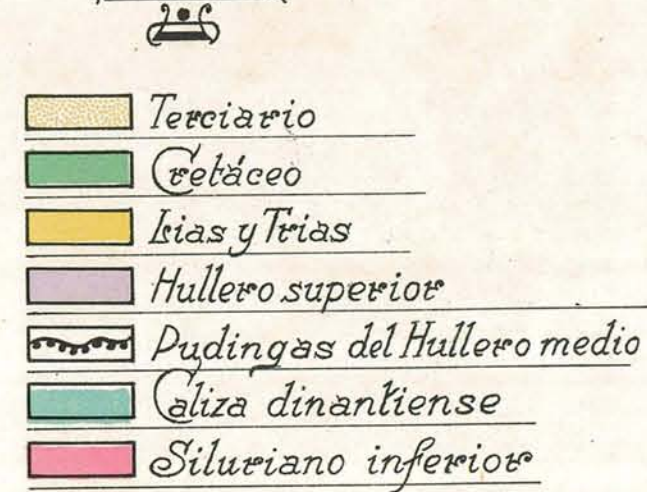 Terciario
Cretáceo
Lias y Trias
Hullero superior
Pudingas del Hullero medio
Caliza dinantiense
Siluriano inferior